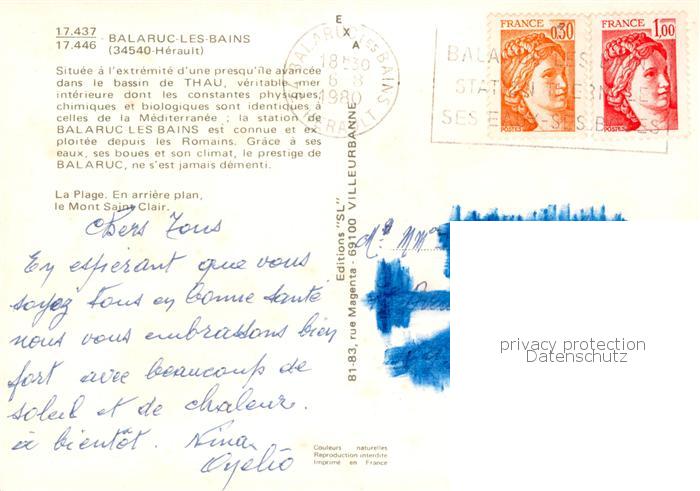 17.437
17.446 - BALARUC-LES-BAINS
(34540-Hérault)
Située à l'extrémité d'une presqu'île avancée
dans le bassin de THAU, véritable mer
intérieure dont les constantes physiques,
chimiques et biologiques sont identiques à
celles de la Méditerranée ; la station de
BALARUC LES BAINS est connue et ex
ploitée depuis les Romains. Grâce à ses
eaux, ses boues et son climat, le prestige de
BALARUC, ne s'est jamais démenti.
La Plage. En arrière plan,
le Mont Saint Clair.
Chers Tous
En espérant que vous
soyez tous en bonne santé
nous vous embrassons bien
fort avec beaucoup de
soleil et de chaleur.
à bientôt. Nina
EXA
Editions "SL"
81-83, rue Magenta - 69100 VILLEURBANNE
Couleurs naturelles
Reproduction interdite
Imprimé en France
BALARUC LES BAINS
18H30
6-8
1980
HERAULT
BALARUC LES BAINS
STATION THERMALE
SES EAUX-SES BOUES
FRANCE
0,30
POSTES
FRANCE
1,00
POSTES
privacy protection
Datenschutz